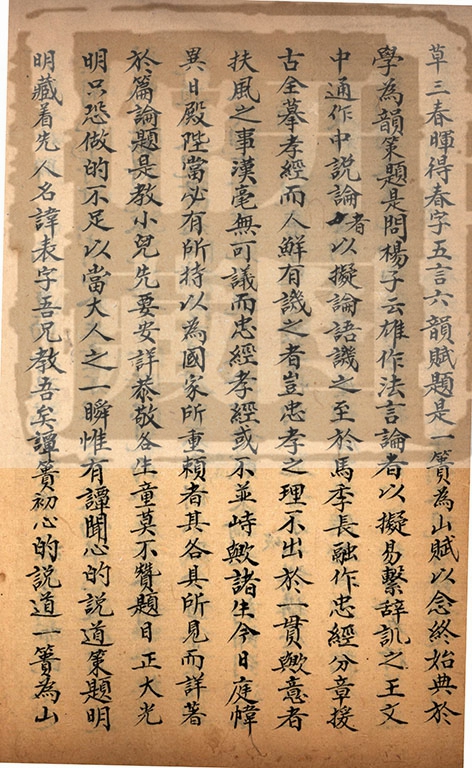 草三春暉得春字五言六韻賦題是一簣為山賦以念終始典於
學為韻策題是問楊子云雄作法言論者以擬易繫辭訊之王文
中通作中說論者以擬論語譏之至於馬季長融作忠經分章援
古全摹孝經而人鮮有譏之者豈忠孝之理不出於一貫歟意者
扶風之事漢毫無可議而忠經孝經或不並峙歟諸生今日庭幃
異日殿陛當必有所持以為國家所重賴者其各具所見而詳著
於篇論題是教小兒先要安詳恭敬各生童莫不贊題目正大光
明只恐做的不足以當大人之一瞬惟有譚聞心的說道策題明
明藏着先人名諱表字吾兄教吾矣譚簣初心的說道一簣為山